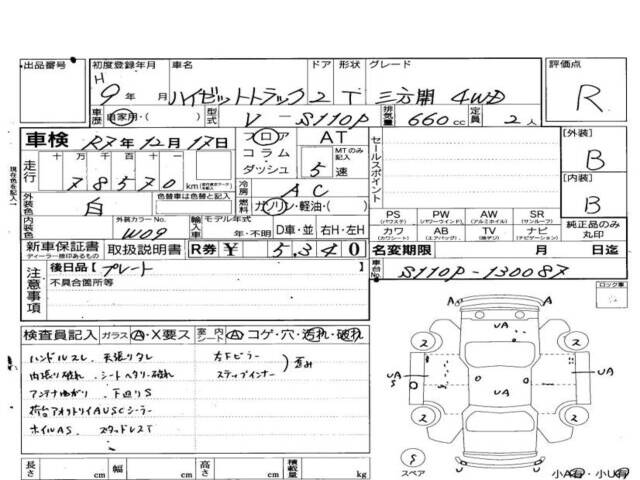 出品番号 初度登録年月 車名 ドア 形状 グレード 評価点
H 9年 月 ハイゼットトラック 2 T 三方開 4WD R
車歴 自家用・( ) 型式 V-S110P 排気量 660cc 定員 2人
車検 R7年12月17日 フロア コラム ダッシュ AT MTのみ記入 5速 セールスポイント
[外装] B
走行 十万 万 千 百 十 一
78570 km
冷房 AC
[内装] B
外装色 白 色替車は色替と記入 燃料 ガソリン・軽油・( )
内装色 外装カラーNo. W09 輸入車 モデル年式 年・不明 D車・並 右H・左H
PS (パワステ) PW (パワーウインド) AW (アルミホイル) SR (サンルーフ)
カワ (カワシート) AB (エアバッグ) TV (後デジ) ナビ (ナビゲーション)
純正品のみ丸印
新車保証書 ディーラー捺印あるもの 取扱説明書 R券 ¥ 5,340 名変期限 月 日迄
注意事項 後日品 [プレート]
不具合箇所等
車台No. S110P-130087
ロック車
現在色を記入
検査員記入 ガラス・A・X要ス 室内シート A・コゲ・穴・汚れ・破れ
ハンドルスレ 天張りタレ 右Fピラー
内張り破れ シートヘタリ・破れ ステップインナー 歪み
アンテナ曲がり 下廻りS
荷台アオリトリイAUSCシーラー
ホイルAS スタッドレスT
UA
2 2
UA S UA UA
2 2
S
スペア
小A有・小U有
長さ cm 幅 cm 高さ cm 積載量 kg